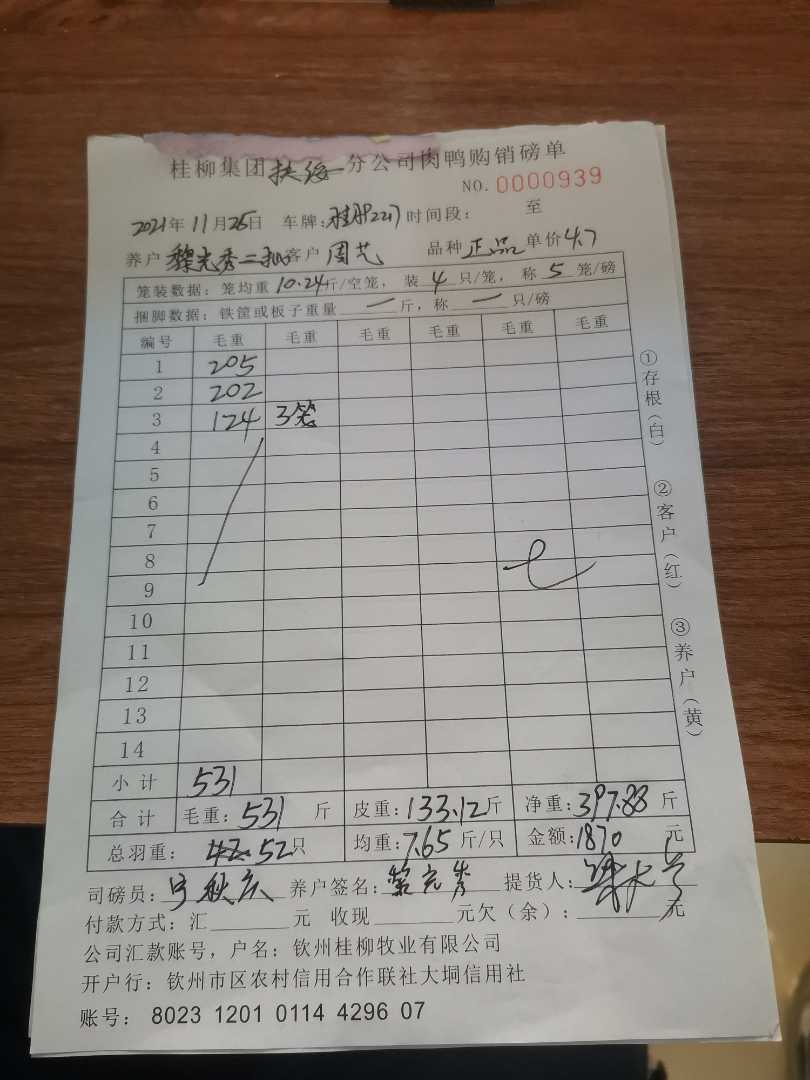 桂柳集团扶绥分公司肉鸭购销磅单
NO. 0000939
2021年11月25日 车牌:桂 2217 时间段: 至
养户 黎光秀二批 客户 周艺 品种 正品 单价4.7
笼装数据:笼均重 10.24斤/空笼, 装 4 只/笼, 称 5 笼/磅
捆脚数据:铁筐或板子重量 一 斤,称 一 只/磅
编号 毛重 毛重 毛重 毛重 毛重 毛重
1 205
2 202
3 124 3笼
4
5
6
7
8
9
10
11
12
13
14
小计 531
合计 毛重:531 斤 皮重:133.12斤 净重:397.88 斤
总羽重: 52只 均重:7.65 斤/只 金额:1870 元
司磅员: 养户签名:黎光秀 提货人:
付款方式:汇 元 收现 元欠(余): 元
公司汇款账号,户名:钦州桂柳牧业有限公司
开户行:钦州市区农村信用合作联社大垌信用社
账号: 8023 1201 0114 4296 07
①存根(白)
②客户(红)
③养户(黄)